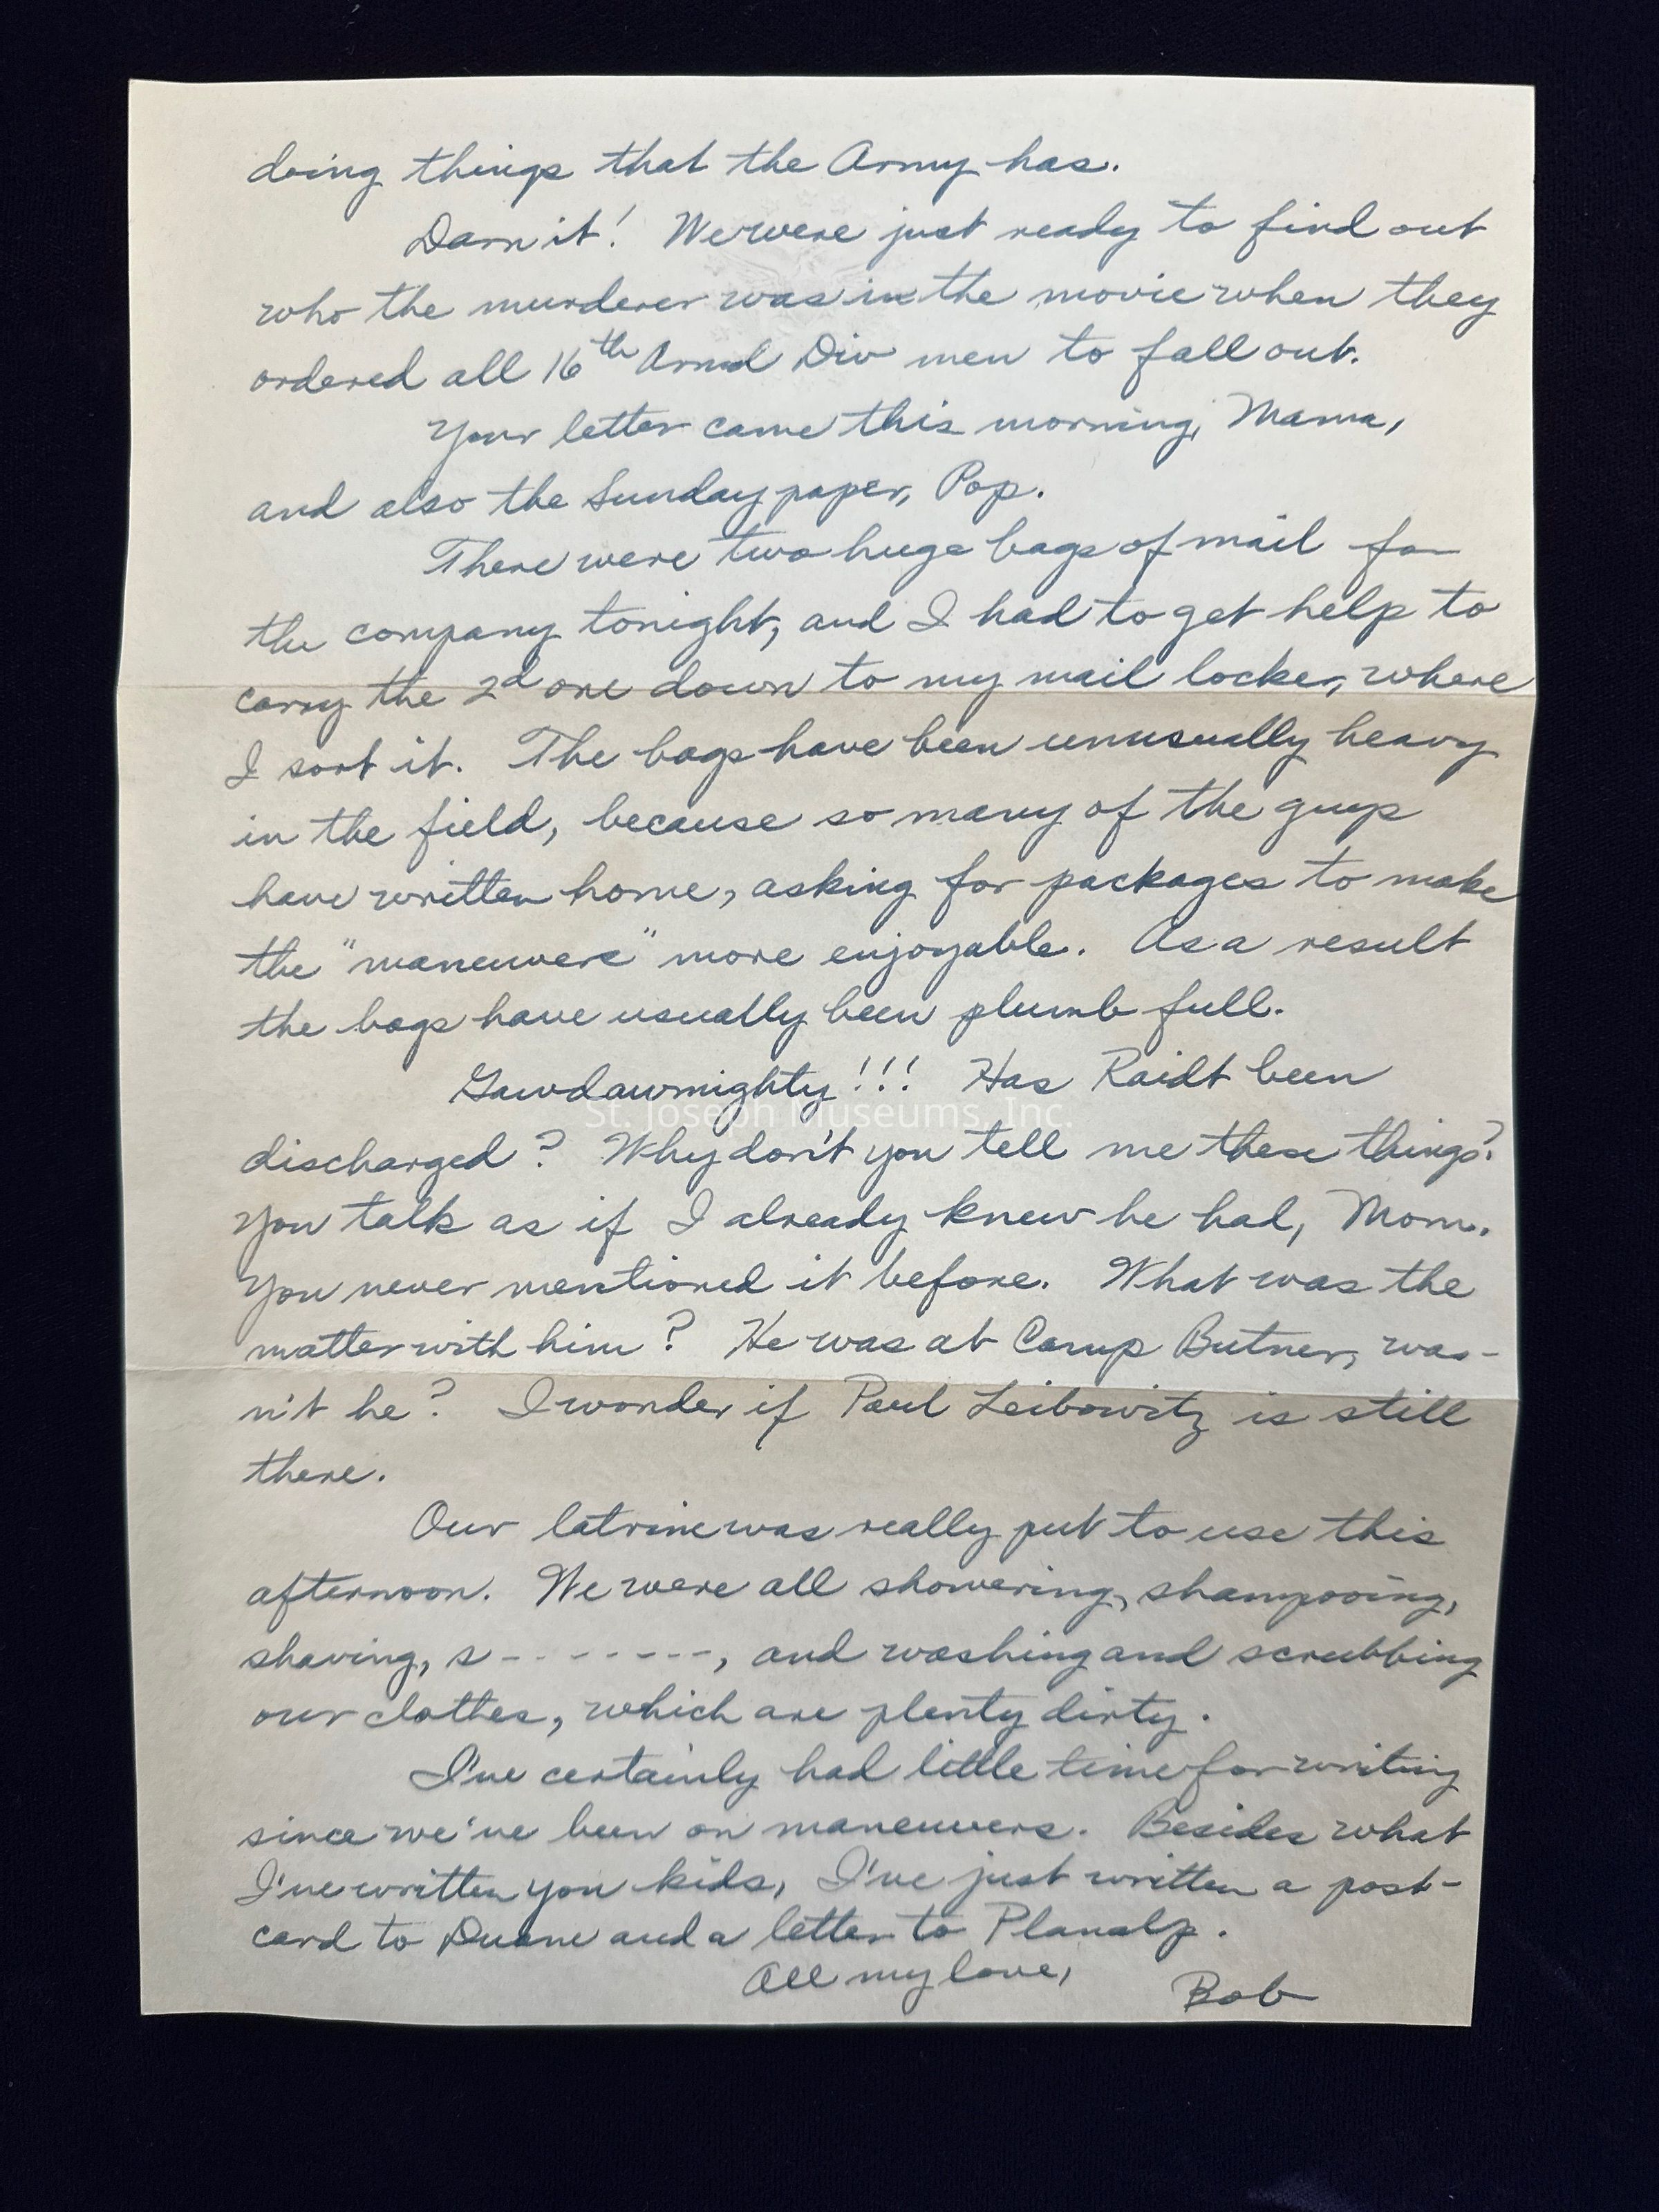 doing things that the Army has.
Darn it! We were just ready to find out
who the murderer was in the movie when they
ordered all 16th Armd Div men to fall out.
Your letter came this morning, Mama,
and also the Sunday paper, Pop.
There were two huge bags of mail for
the company tonight, and I had to get help to
carry the 2d one down to my mail locker, where
I sort it. The bags have been unusually heavy
in the field, because so many of the guys
have written home, asking for packages to make
the "maneuvers" more enjoyable. As a result
the bags have usually been plumb full.
Gawdawmighty!!! Has Raidt been
St. Joseph Museums, Inc.
discharged? Why don't you tell me these things?
You talk as if I already knew he had, Mom.
You never mentioned it before. What was the
matter with him? He was at Camp Butner, was-
n't he? I wonder if Paul Leibowitz is still
there.
Our latrine was really put to use this
afternoon. We were all showering, shampooing,
shaving, s--------, and washing and scrubbing
our clothes, which are plenty dirty.
I've certainly had little time for writing
since we've been on maneuvers. Besides what
I've written you kids, I've just written a post-
card to Duane and a letter to Planalp.
All my love,
Bob